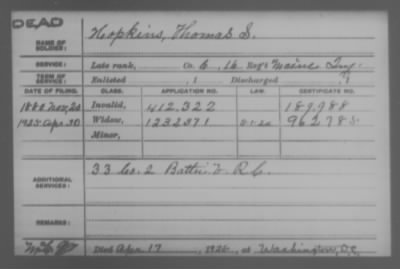 DEAD
NAME OF SOLDIER: Hopkins, Thomas S.
SERVICE: Late rank, Co. C, 16 Reg't Maine Inf.
TERM OF SERVICE: Enlisted , 1 Discharged , 1
DATE OF FILING. CLASS. APPLICATION NO. LAW. CERTIFICATE NO.
1880 Nov, 20 Invalid, 412,322 189,988
1925 Apr, 30 Widow, 1232371 962785
Minor,
ADDITIONAL SERVICES: 33 Co. 2 Batt'n V. R. C.
REMARKS:
Died Apr 17, 1925, at Washington, D.C.